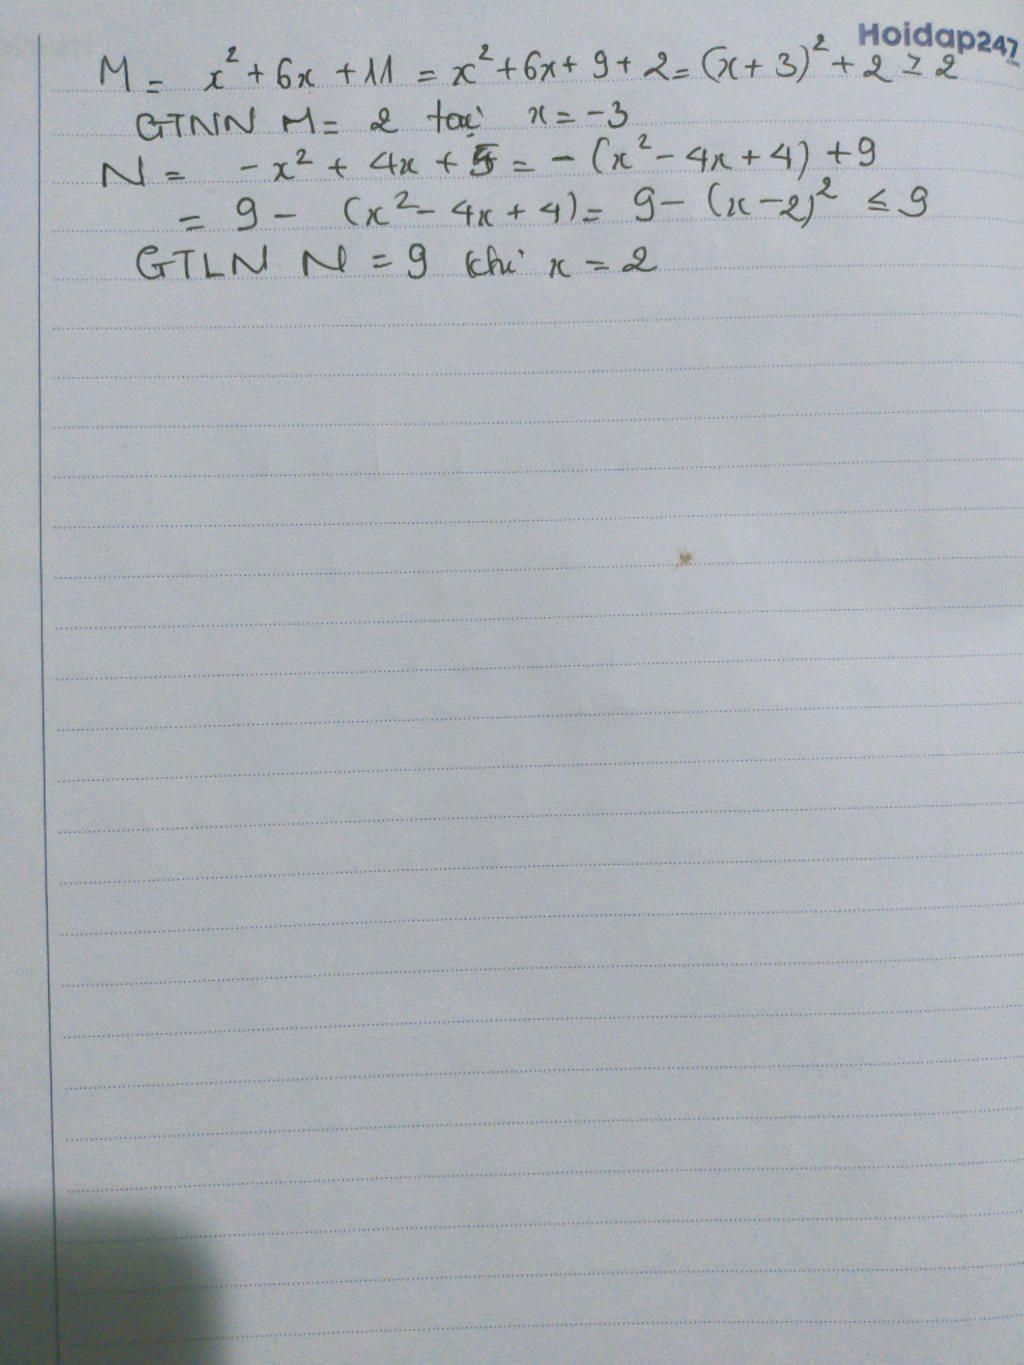 Hoidap247.com
M = x² + 6x + 11 = x² + 6x + 9 + 2 = (x + 3)² + 2 ≥ 2
GTNN M = 2 tại x = -3
N = -x² + 4x + 5 = - (x² - 4x + 4) + 9
= 9 - (x² - 4x + 4) = 9 - (x - 2)² ≤ 9
GTLN N = 9 khi x = 2